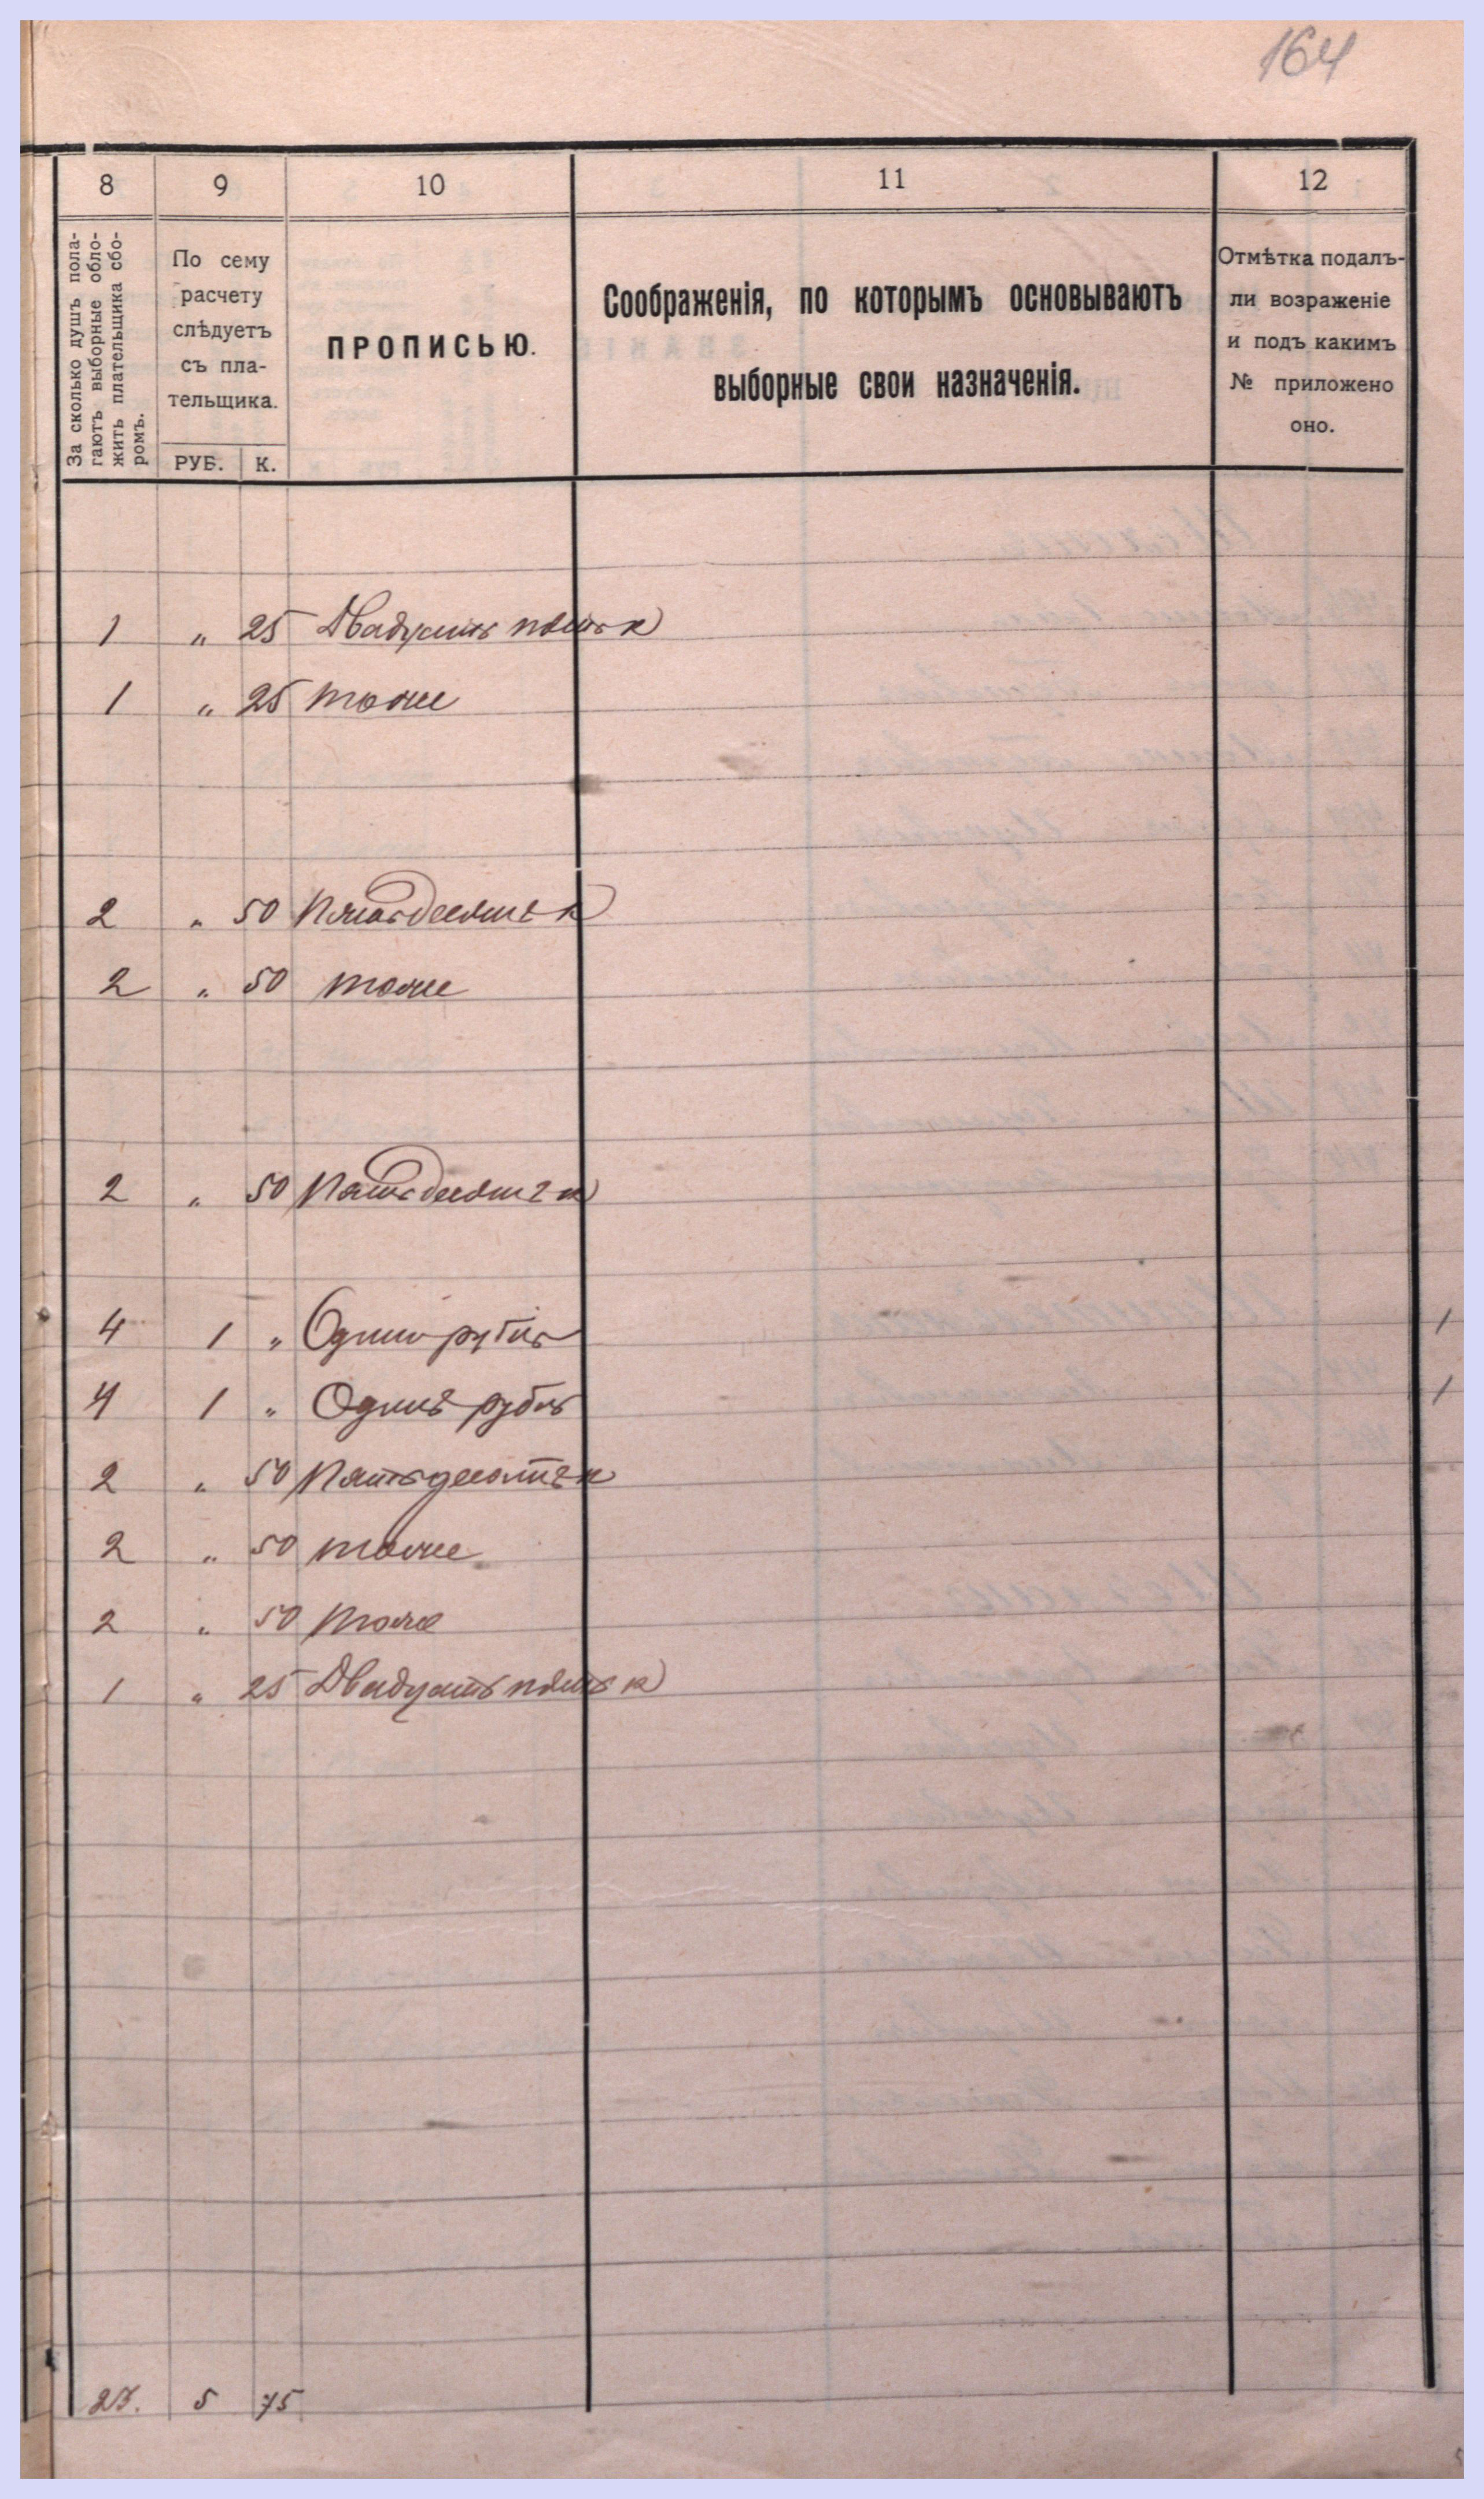 164
8 9 10 11 12
За сколько душъ пола-
гаютъ выборные обло-
жить плательщика сбо-
ромъ.
По сему
расчету
слѣдуетъ
съ пла-
тельщика.
РУБ. К.
ПРОПИСЬЮ.
Соображенія, по которымъ основываютъ
выборные свои назначенія.
Отмѣтка подалъ-
ли возраженіе
и подъ какимъ
№ приложено
оно.
1 „ 25 Двадцать пять к
1 „ 25 тоже
2 „ 50 Пятьдесятъ к
2 „ 50 тоже
2 „ 50 Пятьдесятъ к
4 1 „ Одинъ рубль 1
4 1 „ Одинъ рубль 1
2 „ 50 Пятьдесятъ к
2 „ 50 тоже
2 „ 50 тоже
1 „ 25 Двадцать пять к
23. 5 75